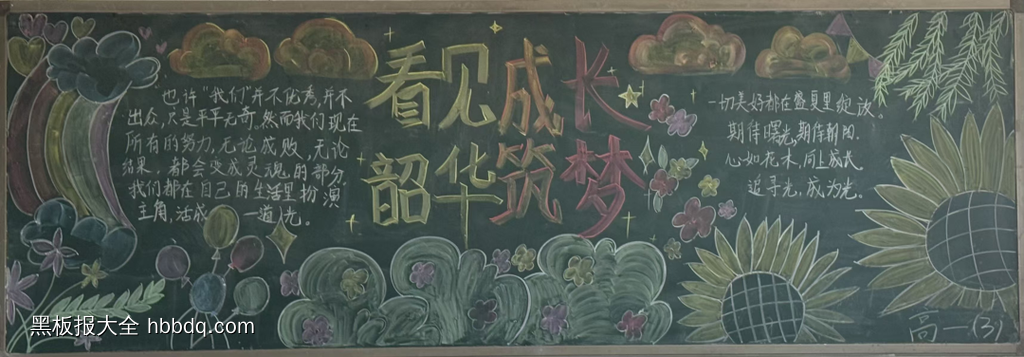 看见成长
韶华筑梦
也许"我们"并不优秀,并不
出众,只是平平无奇。然而我们现在
所有的努力,无论成败,无论
结果,都会变成灵魂的部分。
我们都在自己的生活里扮演
主角,活成一道光。
一切美好都在盛夏里绽放。
期待曙光,期待朝阳。
心如花木,向上成长
追寻光,成为光。
高一(3)
黑板报大全 hbbdq.com